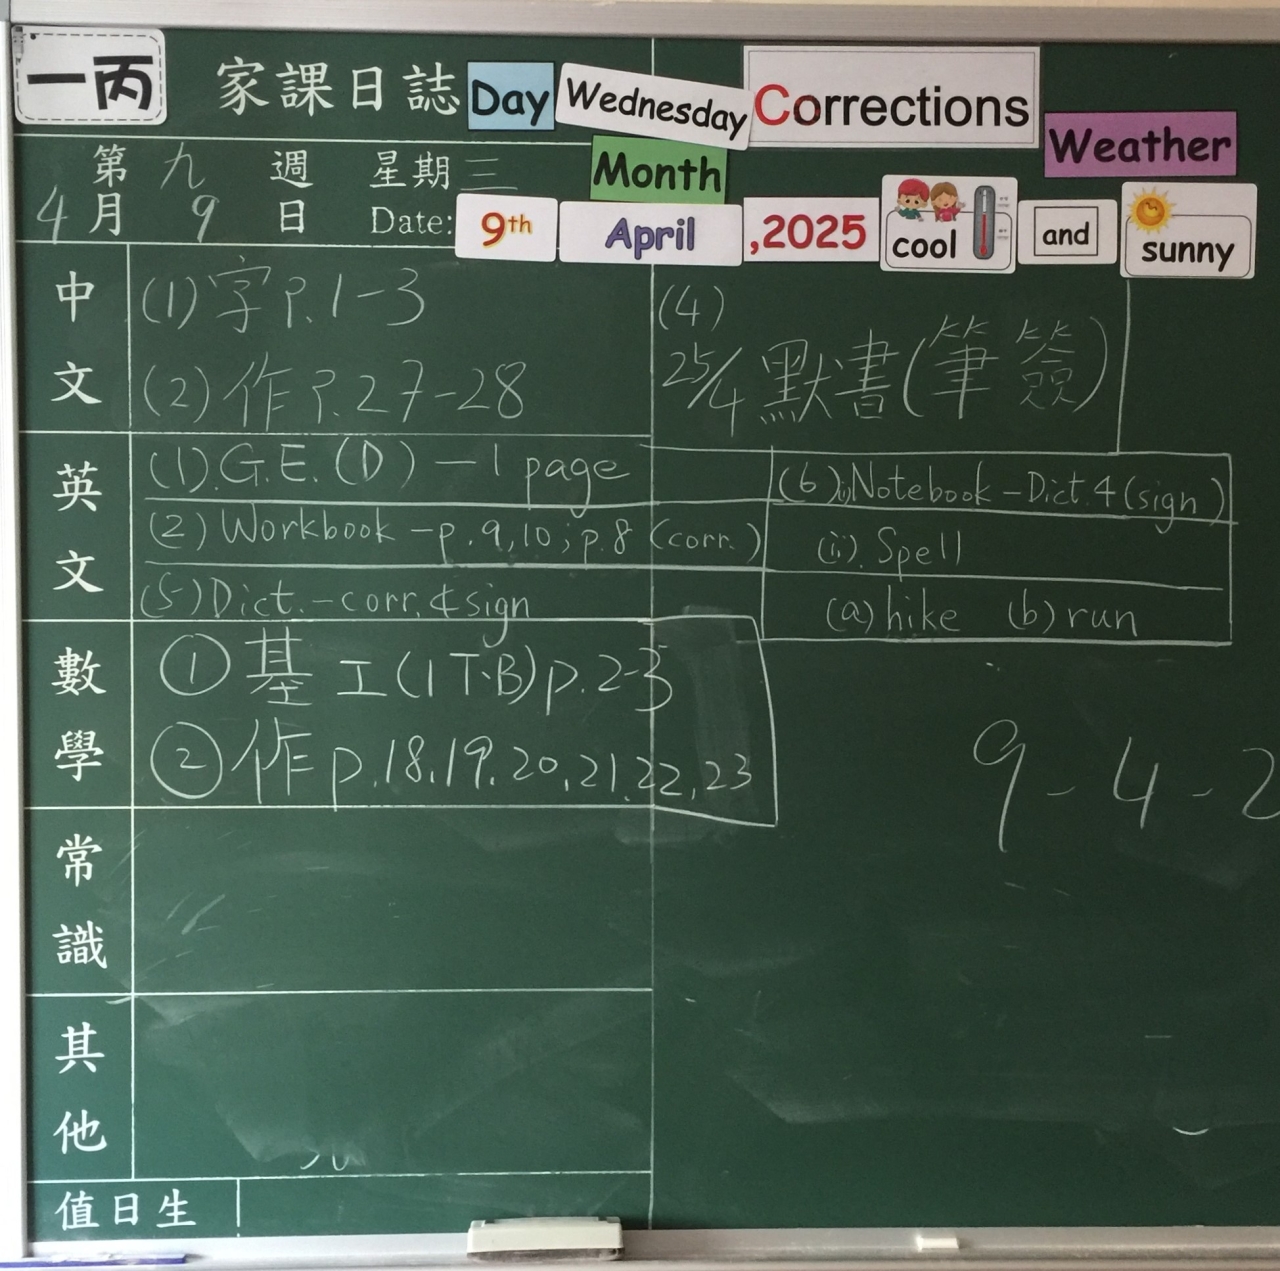 一丙 家課日誌 Day Wednesday Corrections
Month Weather
第九週 星期三
4月9日 Date: 9th April ,2025 cool and sunny
中文
(1)字P.1-3
(2)作P.27-28
(4)
25/4 默書(筆簽)
英文
(1).G.E.(D)-1 page
(2) Workbook -p.9,10;p.8 (corr.)
(5)Dict.-corr.&sign
(6)(i)Notebook-Dict.4(sign)
(ii).Spell
(a)hike (b)run
數學
① 基工(1T.B)p.2-3
② 作p.18,19,20,21,22,23
9-4-2
常識
其他
值日生